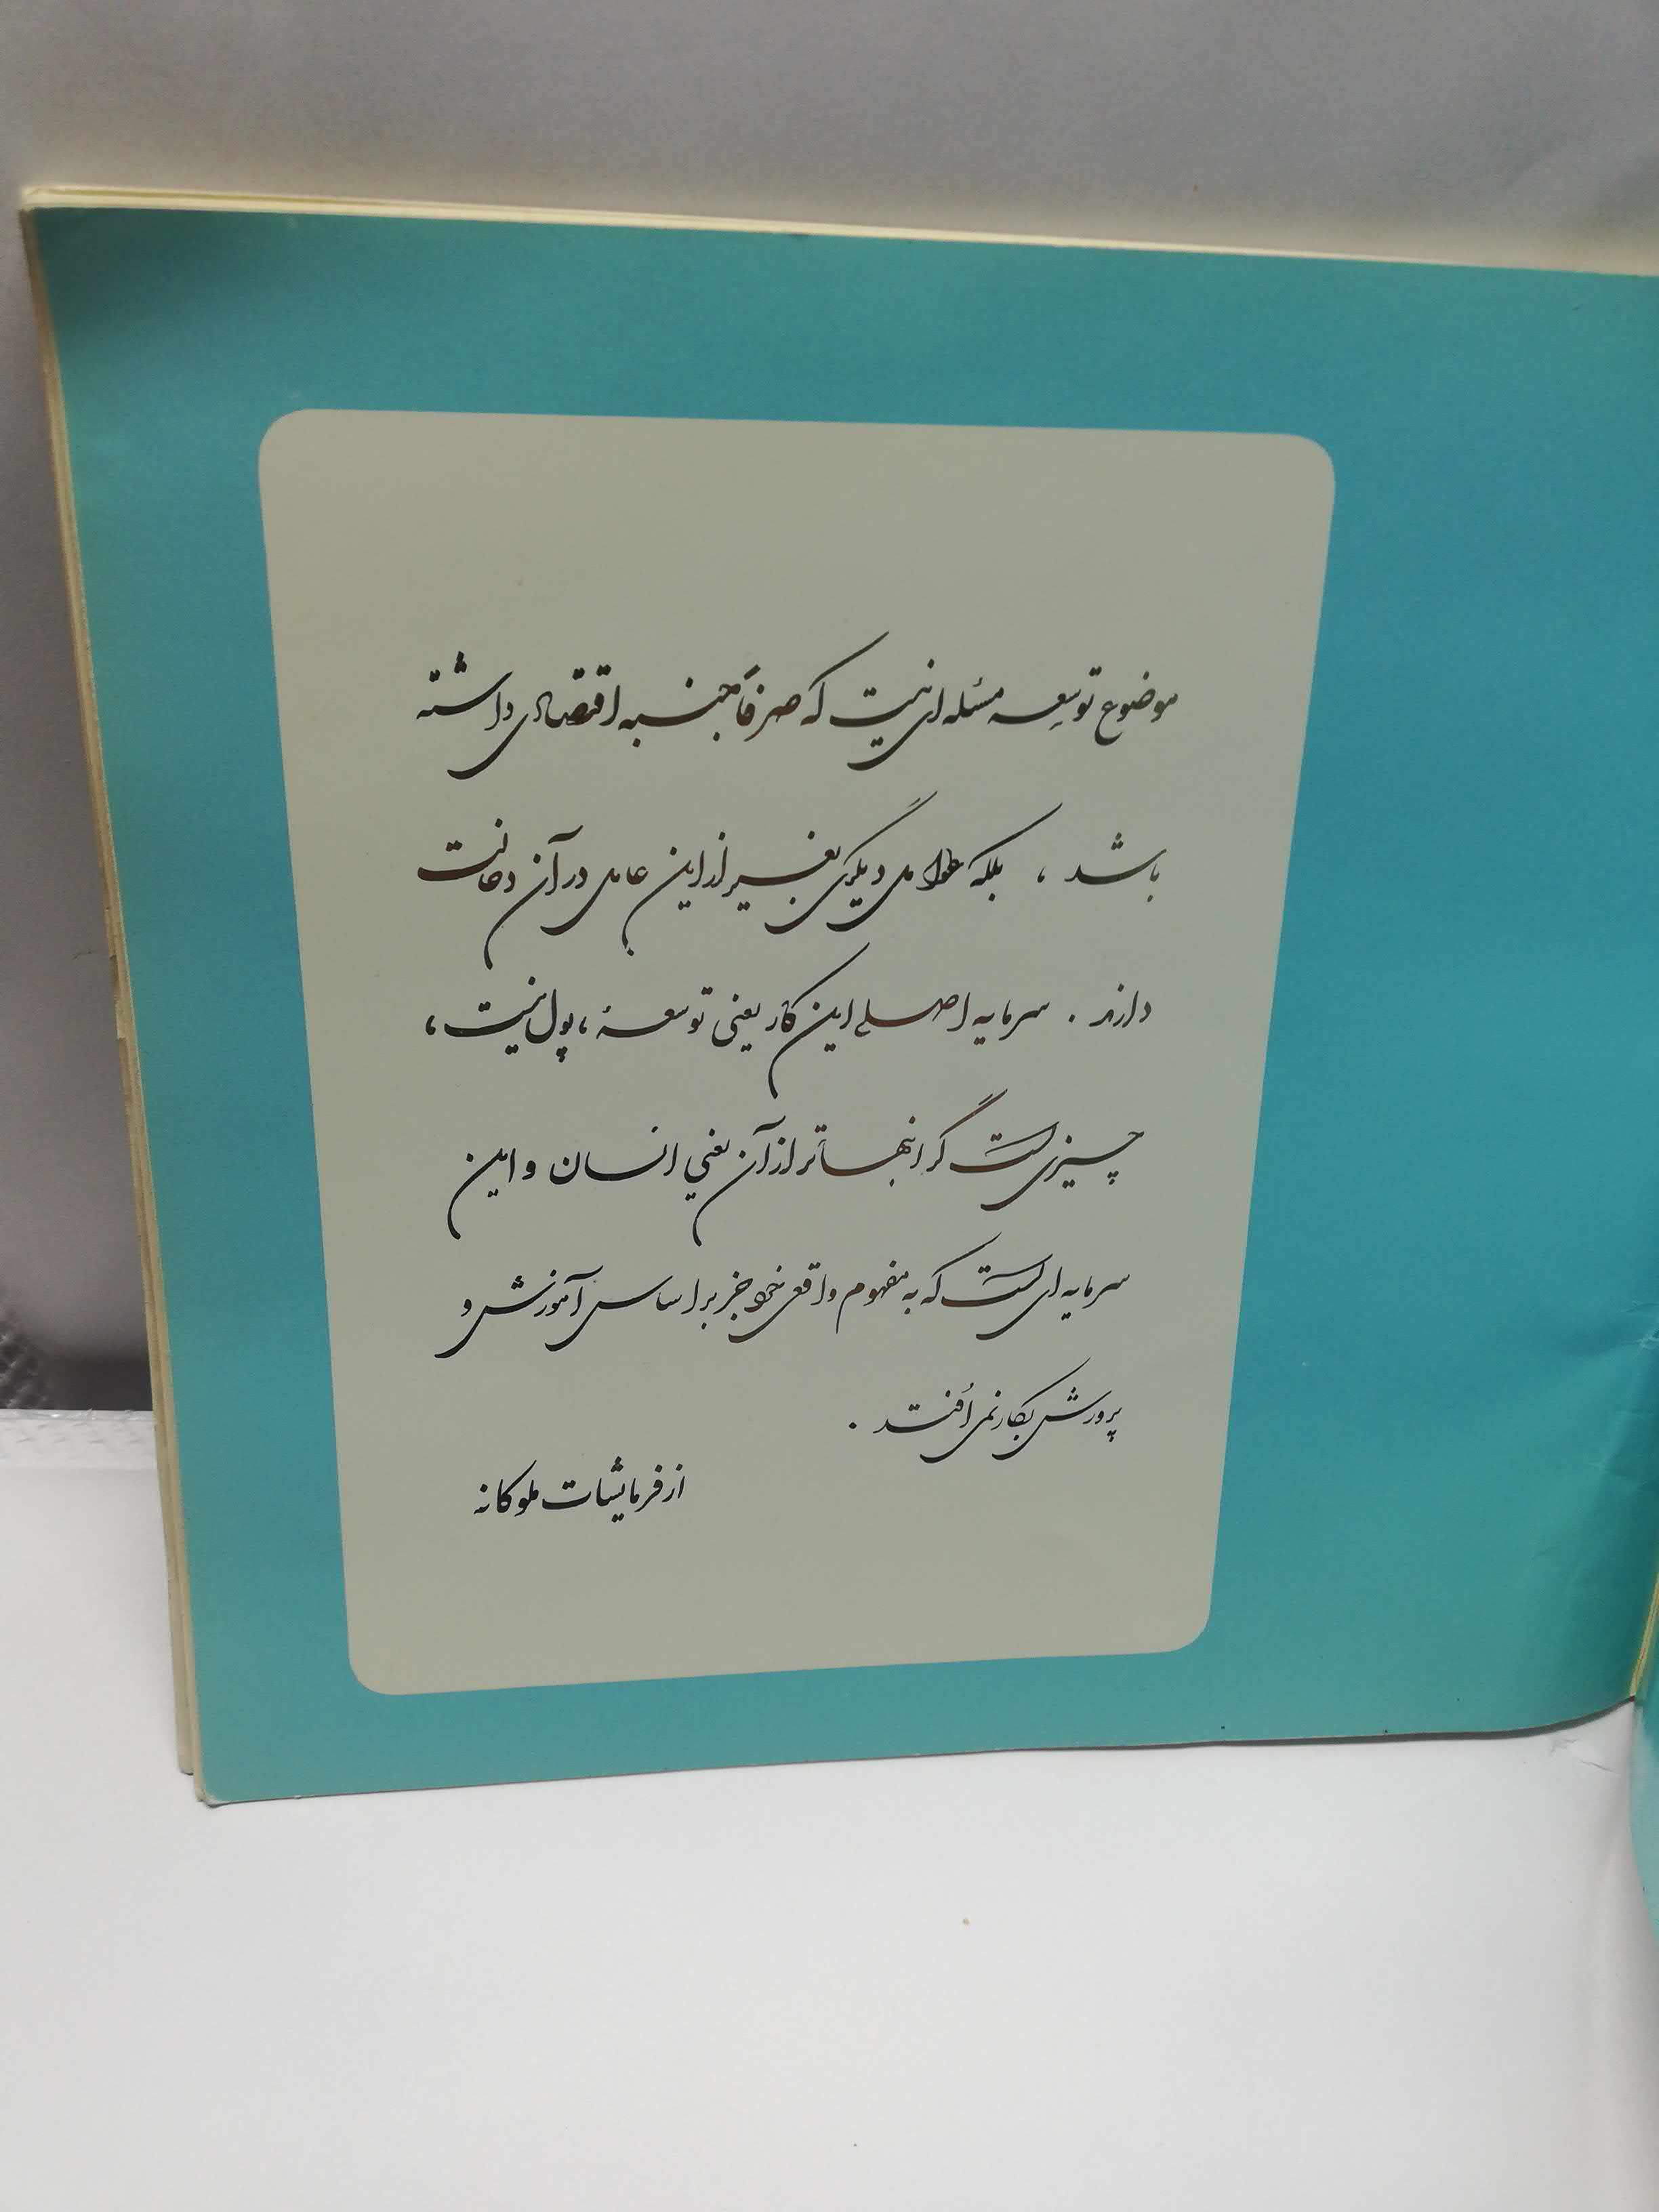 موضوع توسعه مسئله‌ای نیست که صرفاً جنبه اقتصادی داشته
باشد ، بلکه عوامل دیگری بغیر از این عامل در آن دخالت
دارند . سرمایه اصلی این کار یعنی توسعهٔ ، پول نیست ،
چیزی است گرانبهاتر از آن یعنی انسان و این
سرمایه‌ای است که به مفهوم واقعی خود جز بر اساس آموزش و
پرورش بکار نمی اُفتد .
از فرمایشات ملوکانه